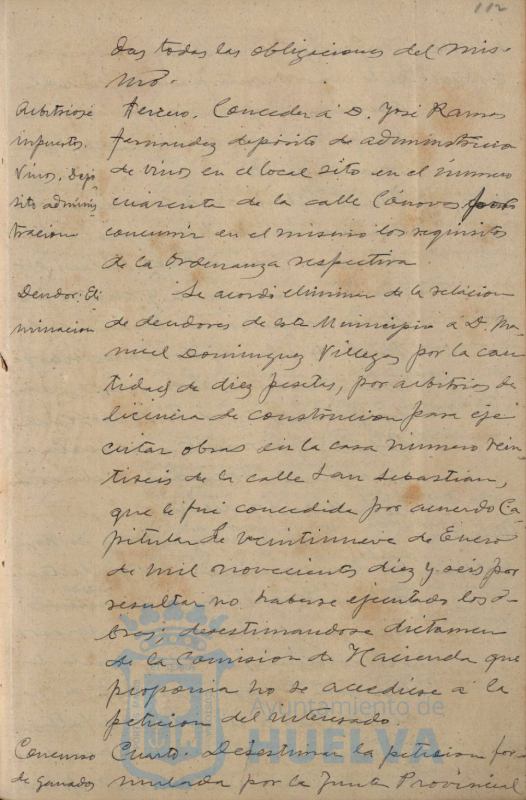 112
das todas las obligaciones del mis-
mo.
Arbitrios é
impuestos.
Vinos, depó
sito adminis
tracion
Tercero. Conceder á D. José Ramos
Fernandez depósito de administracion
de vinos en el local sito en el número
cuarenta de la calle Cánovas
concurrir en el mismo los requisitos
de la Ordenanza respectiva.
Deudor: Eli
minacion
Se acordó eliminar de la relacion
de deudores de este Municipio á D. Ma
nuel Dominguez Villegas por la can
tidad de diez pesetas, por arbitrios de
licencia de construccion para eje
cutar obras en la casa número vein
tiseis de la calle San Sebastian,
que le fué concedida por acuerdo Ca
pitular de veintinueve de Enero
de mil novecientos diez y seis por
resultar no haberse ejecutado los o-
bras; desestimandose dictamen
de la Comision de Hacienda que
proponia no se accediese á la
peticion del interesado.
Concurso
de ganados
Cuarto. Desestimar la peticion for-
mulada por la Junta Provincial
Ayuntamiento de
HUELVA